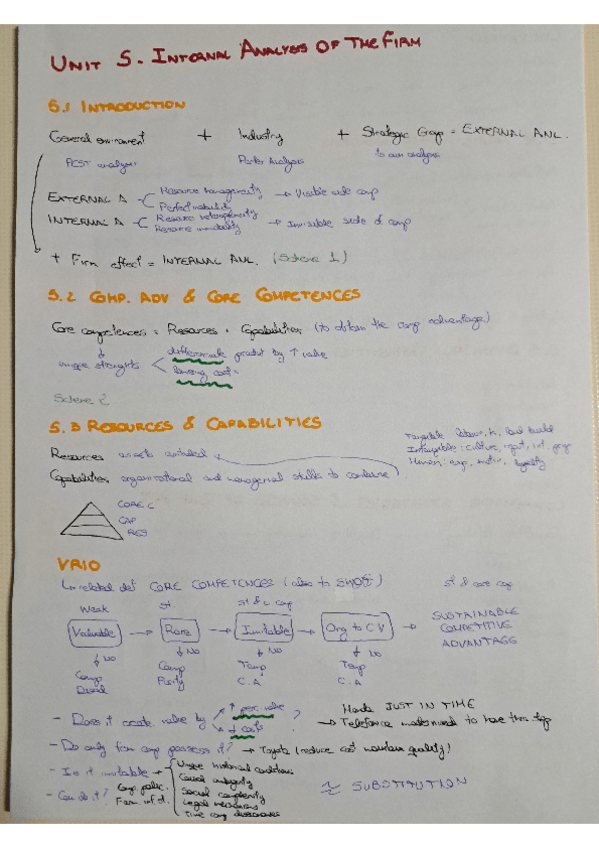 UNIT 5. INTERNAL ANALYSIS OF THE FIRM
5.1 INTRODUCTION
General enviroment + Industry + Strategic Group = EXTERNAL ANL.
PEST analysis Porter Analysis
EXTERNAL A Resource homogeneity → Visible side comp
Perfect mobility
INTERNAL A Resource heterogeneity → Invisible side of comp
Resource immobility
+ Firm effect = INTERNAL ANL. (Scheme 1)
5.2 COMP. ADV & CORE COMPETENCES
Core competences = Resources + Capabilities (to obtain the comp advantage)
unique strenghts differentiate product by ↑ value
lowering costs
Scheme 2
5.3 RESOURCES & CAPABILITIES
Tangible: labour, k, land build
Resources assets
Human: exp, motiv, loyalty
Capabilities organizational and managerial skills to combine
CORE C
CAP
RES
VRIO
related def CORE COMPETENCES (also to SWOT) st & core comp
Weak st st & c comp
Valuable → Rare → Imitable → Org to C V → SUSTAINABLE COMPETITIVE ADVANTAGE
↓ NO ↓ NO ↓ NO ↓ NO
Comp Comp Temp Temp
Disad Parity C.A C.A
- Does it create value by ↑ perc. value ? JUST IN TIME
↓ costs → Telefonica to have this
- Do only firm comp possess it? → Toyota (reduce cost maintain quality)
- Is it imitable → Unique historical conditions
Causal ambiguity
Social complexity
Legal
Time comp
≈ SUBSTITUTION
- Can do it? Comp. polic.